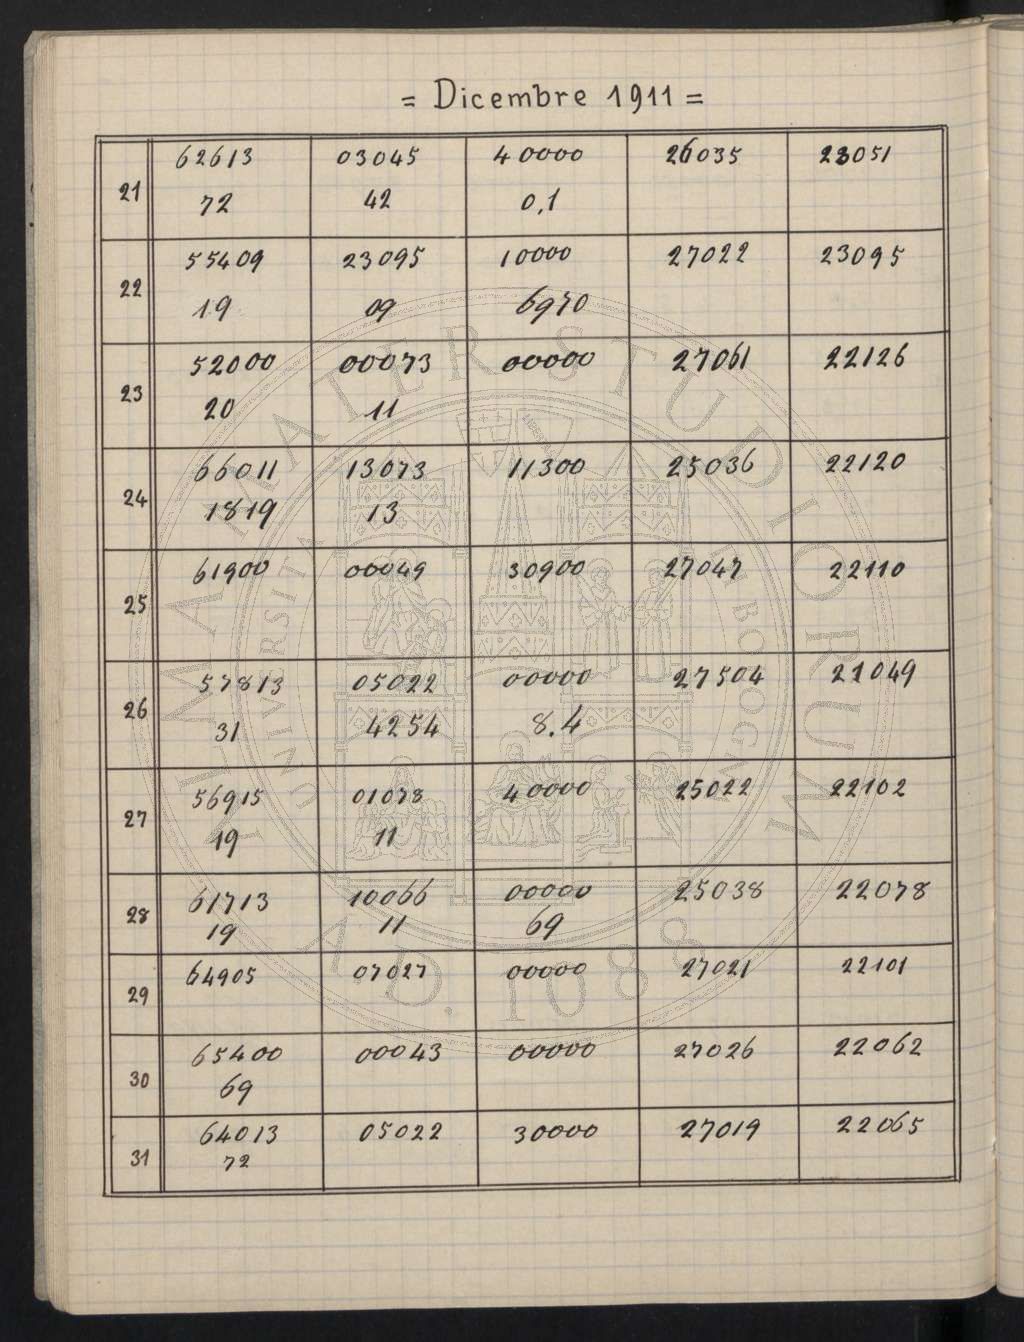 = Dicembre 1911 =
21 62613 03045 40000 26035 23051
72 42 0,1
22 55409 23095 10000 27022 23095
19 09 6970
23 52000 00073 00000 27061 22126
20 11
24 66011 13073 11300 25036 22120
1819 13
25 61900 00049 30900 27047 22110
26 57813 05022 00000 27504 21049
31 4254 8.4
27 56915 01078 40000 25022 22102
19 11
28 61713 10066 00000 25038 22078
19 11 69
29 64905 07027 00000 27021 22101
30 65400 00043 00000 27026 22062
69
31 64013 05022 30000 27019 22065
72
ALMA MATER STUDIORUM
A.D. 1088